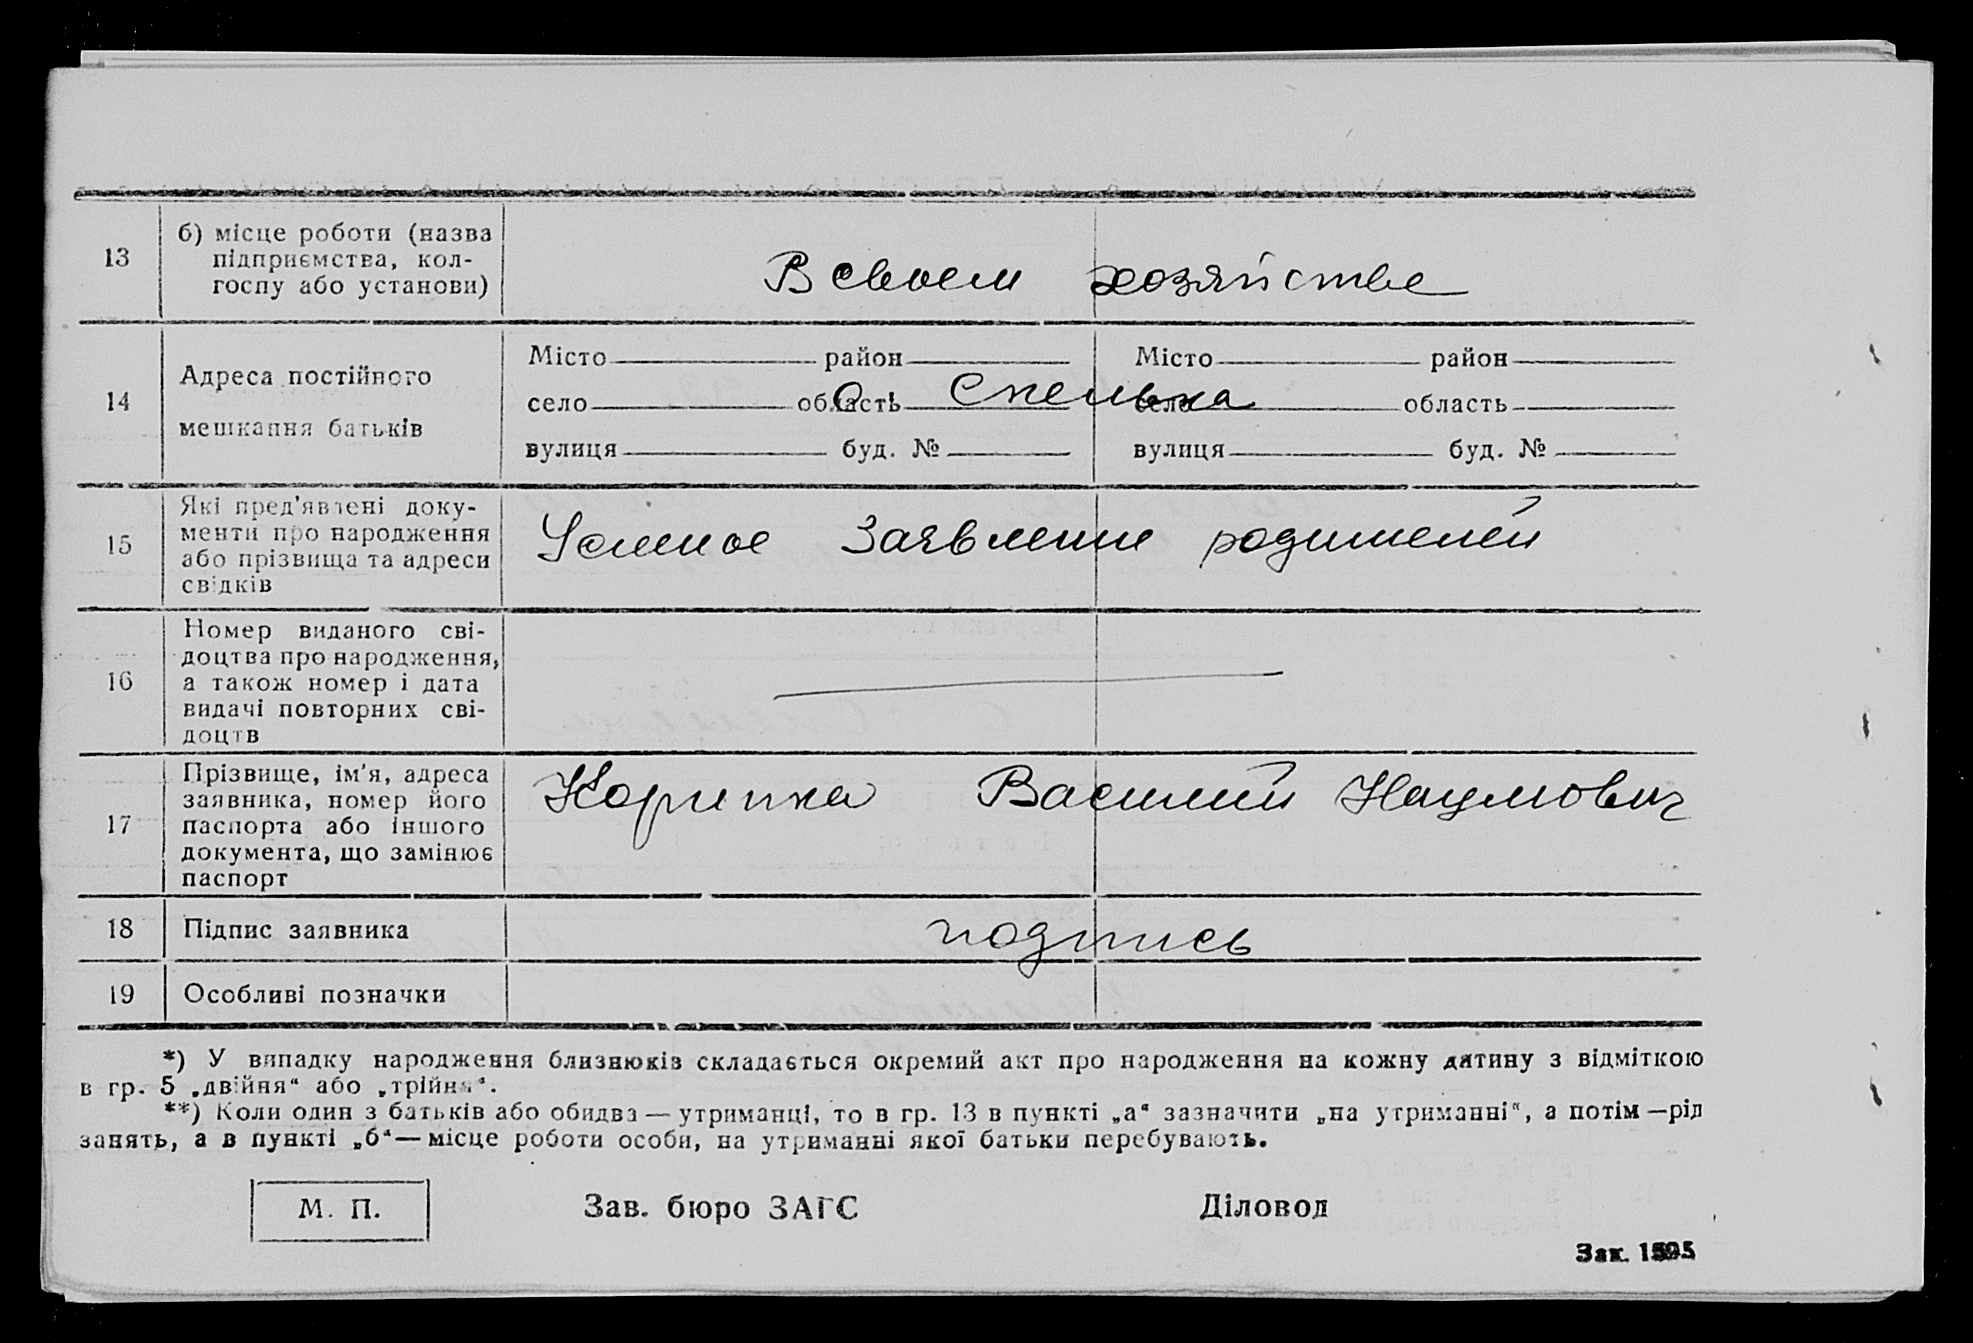 13
б) місце роботи (назва
підприємства, кол-
госпу або установи)
В своем хозяйстве
14
Адреса постійного
мешкання батьків
Місто район
село область
вулиця буд. №
Місто район
село область
вулиця буд. №
15
Які пред'явлені доку-
менти про народження
або прізвища та адреси
свідків
Устное Заявление родителей
16
Номер виданого сві-
доцтва про народження,
а також номер і дата
видачі повторних сві-
доцтв
17
Прізвище, ім'я, адреса
заявника, номер його
паспорта або іншого
документа, що замінює
паспорт
Василий Наумович
18
Підпис заявника
подпись
19
Особливі позначки
*) У випадку народження близнюків складається окремий акт про народження на кожну дитину з відміткою
в гр. 5 „двійня“ або „трійня“.
**) Коли один з батьків або обидва — утриманці, то в гр. 13 в пункті „а“ зазначити „на утриманні“, а потім — рід
занять, а в пункті „б“ — місце роботи особи, на утриманні якої батьки перебувають.
М. П.
Зав. бюро ЗАГС
Діловод
Зак.